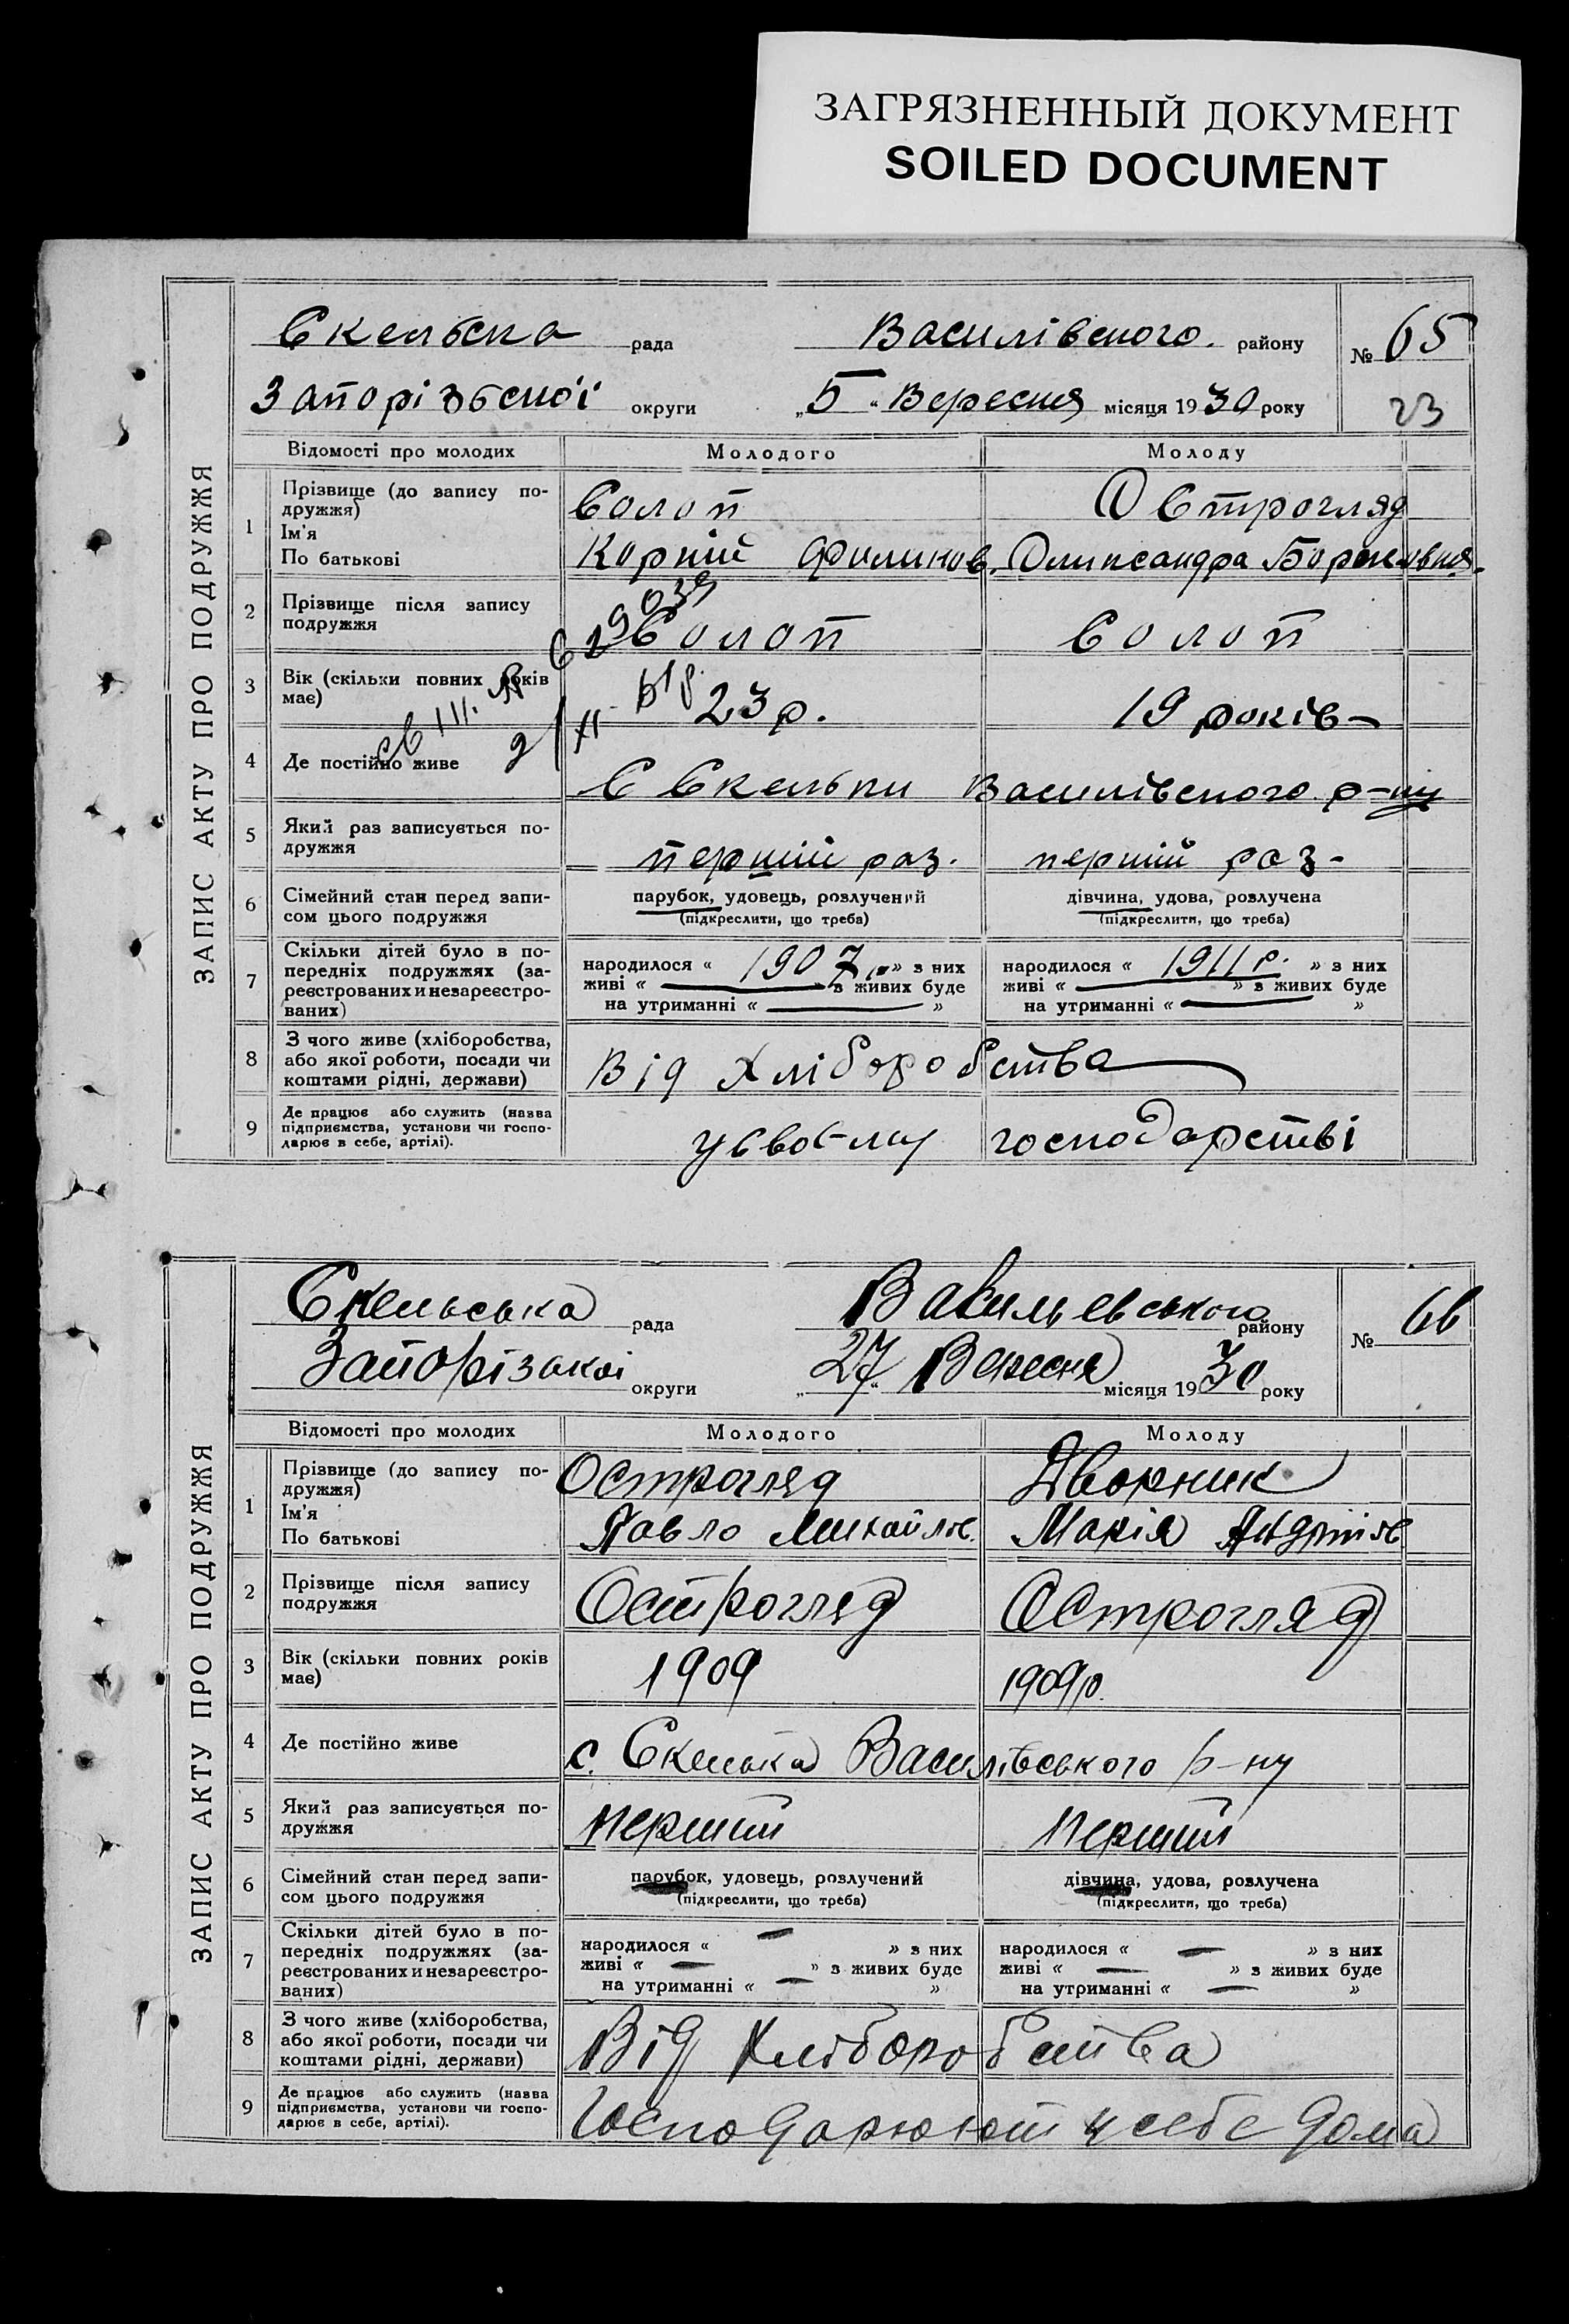 ЗАГРЯЗНЕННЫЙ ДОКУМЕНТ
SOILED DOCUMENT
ЗАПИС АКТУ ПРО ПОДРУЖЖЯ
Скельска рада Василівского району № 65
Запорізьскої округи „5“ Вересня місяця 1930 року 23
Відомості про молодих Молодого Молоду
1 Прізвище (до запису подружжя) Солоп Острогляд
Ім'я По батькові Корній Филипов. Олександра Борисовна.
2 Прізвище після запису подружжя Солоп Солоп
3 Вік (скільки повних років має) 23 р. 19 років
4 Де постійно живе С Скельки Василівского р-ну
5 Який раз записується подружжя перший раз. перший раз -
6 Сімейний стан перед записом цього подружжя парубок, удовець, розлучений (підкреслити, що треба) дівчина, удова, розлучена (підкреслити, що треба)
7 Скільки дітей було в попередніх подружжях (зареєстрованих и незареєстрованих)
народилося « 1907 р » з них народилося « 1911 р. » з них
живі « — » з живих буде живі « — » з живих буде
на утриманні « — » на утриманні « — »
8 З чого живе (хліборобства, або якої роботи, посади чи коштами рідні, держави) Від Хліборобства
9 Де працює або служить (назва підприємства, установи чи господарює в себе, артілі). господарстві
ЗАПИС АКТУ ПРО ПОДРУЖЖЯ
Скельська рада Васильевського району № 66
округи „27“ Вересня місяця 1930 року
Відомості про молодих Молодого Молоду
1 Прізвище (до запису подружжя) Острогляд Дворник
Ім'я По батькові Павло Михайлов. Марія Андріїв
2 Прізвище після запису подружжя Острогляд Острогляд
3 Вік (скільки повних років має) 1909 1909р.
4 Де постійно живе с. Скелька Василівського р-ну
5 Який раз записується подружжя перший перший
6 Сімейний стан перед записом цього подружжя парубок, удовець, розлучений (підкреслити, що треба) дівчина, удова, розлучена (підкреслити, що треба)
7 Скільки дітей було в попередніх подружжях (зареєстрованих и незареєстрованих)
народилося « — » з них народилося « — » з них
живі « — » з живих буде живі « — » з живих буде
на утриманні « — » на утриманні « — »
8 З чого живе (хліборобства, або якої роботи, посади чи коштами рідні, держави) Від Хліборобства
9 Де працює або служить (назва підприємства, установи чи господарює в себе, артілі). Господарюют у себе дома